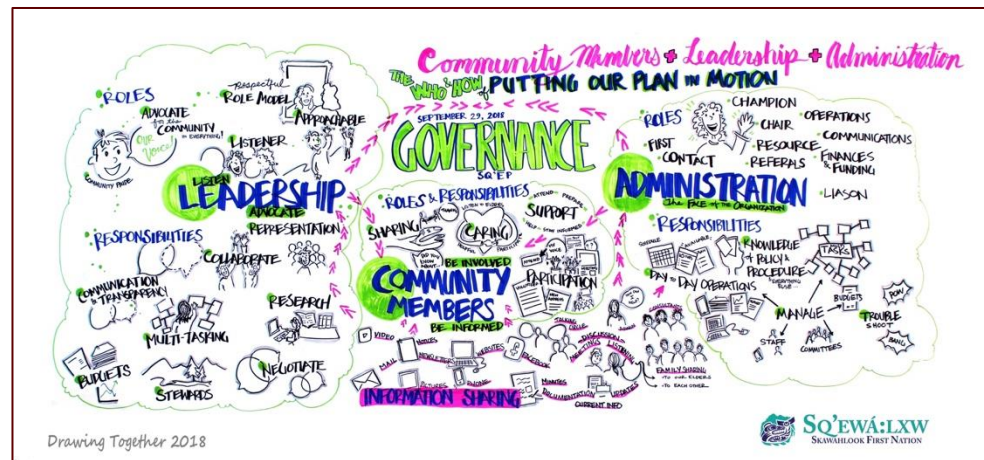 Community Members + Leadership + Administration
THE WHO & HOW, PUTTING OUR PLAN IN MOTION
SEPTEMBER 29, 2018
GOVERNANCE
SQ'EP
ROLES
ADVOCATE
for the
COMMUNITY
in EVERYTHING!
OUR
Voice!
COMMUNITY PRIDE
Respectful
ROLE MODEL
APPROACHABLE
LISTENER
LISTEN
LEADERSHIP
ADVOCATE
REPRESENTATION
RESPONSIBILITIES
COLLABORATE
COMMUNICATION
& TRANSPARENCY
MULTI-TASKING
RESEARCH
BUDGETS
STEWARDS
NEGOTIATE
ROLES & RESPONSIBILITIES
SHARING
LISTEN
CARING
HELPFUL
ATTEND
PREPARE
SUPPORT
HELP
STAY INFORMED
DID YOU
KNOW
ABOUT
MY
VOICE
BE INVOLVED
COMMUNITY
MEMBERS
BE INFORMED
PARTICIPATION
VIDEO
NOTICES
MAIL
NEWSLETTER
WEBSITES
FACEBOOK
PICTURES
PHONE
TALKING
CIRCLE
DISCUSSION
MEETINGS
LISTENING
MINUTES
DOCUMENTATION
UPDATES
CURRENT INFO
INFORMATION SHARING
CONSULTANTS
FAMILY SHARING
→ TO OUR ELDERS
→ TO EACH OTHER
ROLES
FIRST
CONTACT
CHAMPION
CHAIR
RESOURCE
REFERRALS
OPERATIONS
COMMUNICATIONS
FINANCES
& FUNDING
LIASON
ADMINISTRATION
The FACE of the ORGANIZATION
RESPONSIBILITIES
KNOWLEDGE
+ POLICY &
PROCEDURE
+ EVERYTHING
ELSE
TASKS
DAY TO DAY OPERATIONS
MANAGE
BUDGETS
STAFF
COMMITTEES
TROUBLE
SHOOT
POW
BANG
Drawing Together 2018
SQ'EWÁ:LXW
SKAWAHLOOK FIRST NATION